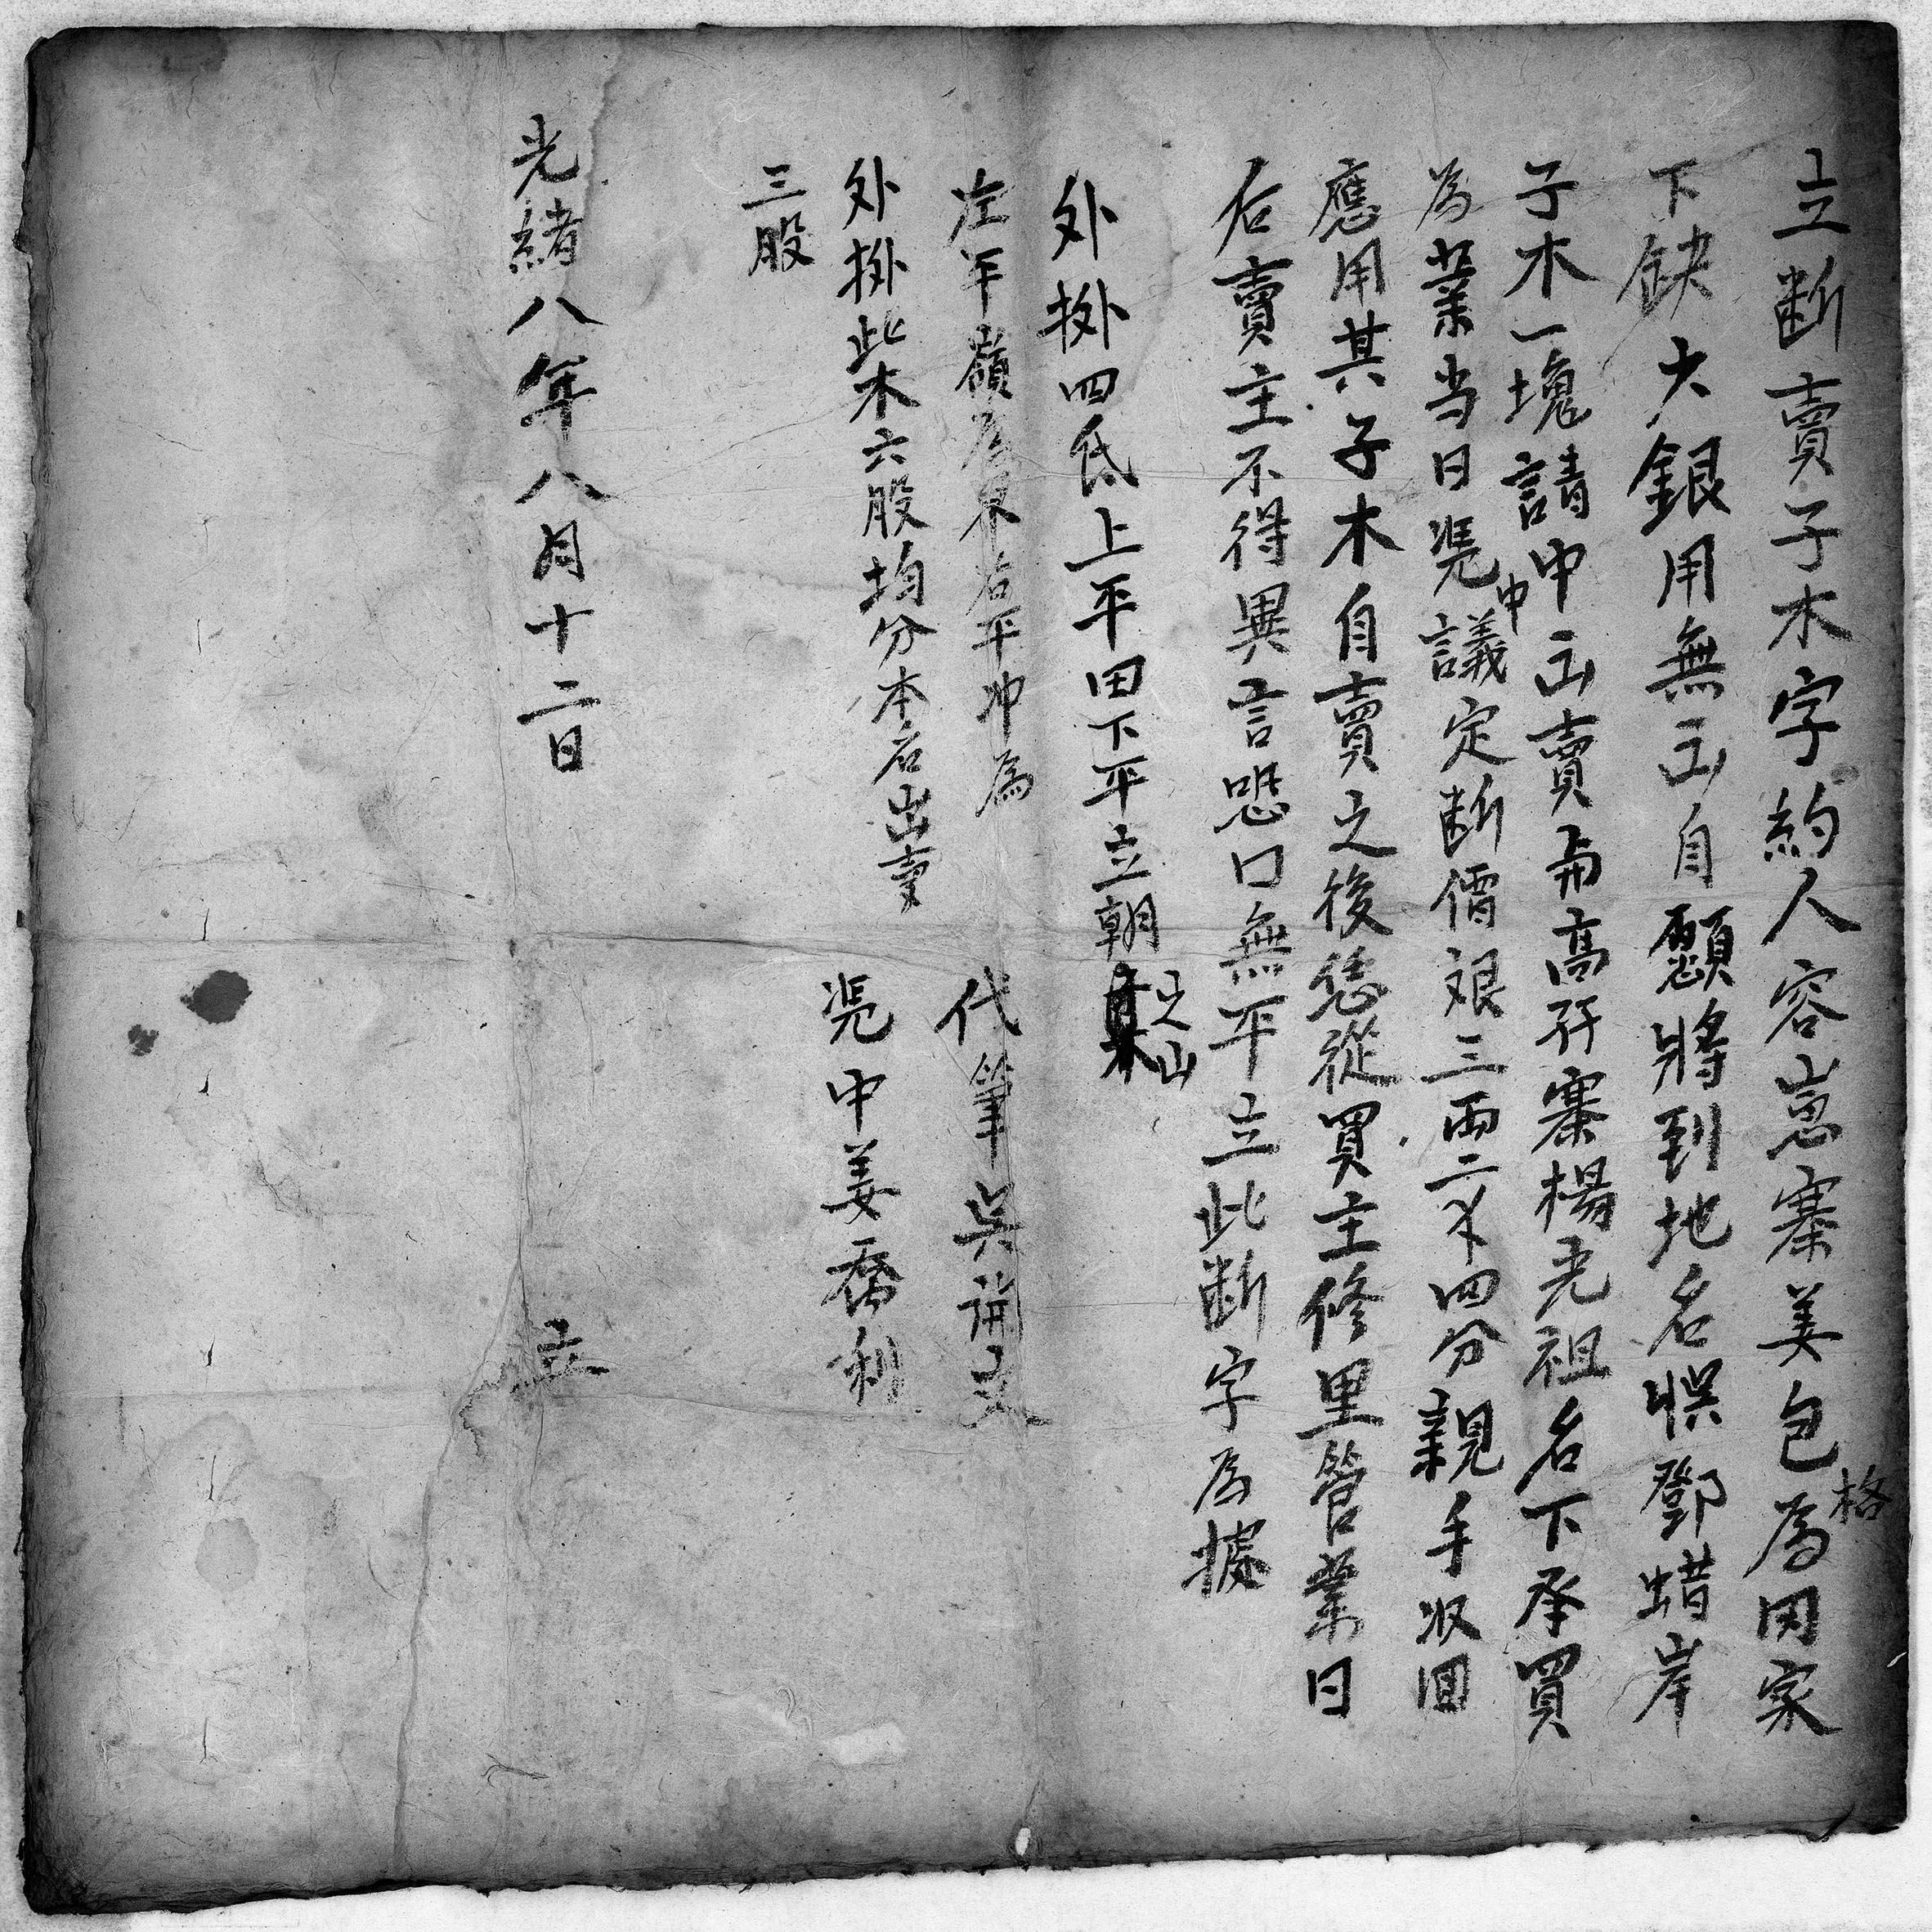 立斷賣子木字約人容嵩寨姜包格為因家
下缺少銀用無出自願將到地名悮鄧蜡岸
子木一塊請中出賣與高孖寨楊光祖名下承買
為業当日凴中議定斷價艮三両二錢四分親手收囬
應用其子木自賣之後恁從買主修里管業日
后賣主不得異言恐口無平立此斷字為據
外掛四低上平田下平立朝之山
左平嶺為界右平冲為
外掛此木六股均分本名出賣
三股
代筆吳開文
凴中姜喬利
光緒八年八月十二日 立